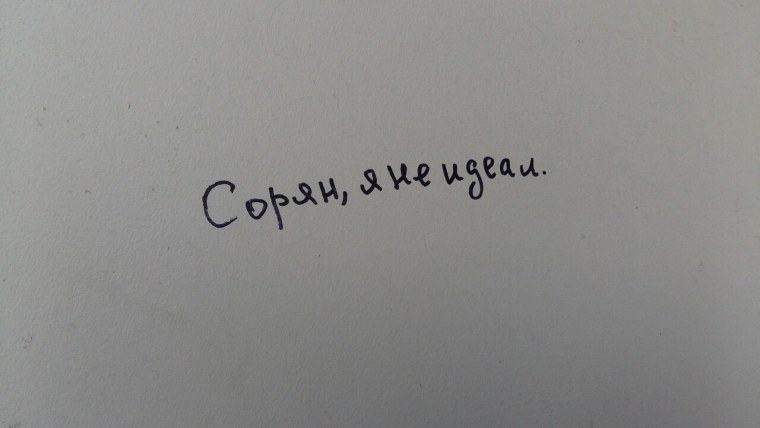 Сорян, я не идеал.